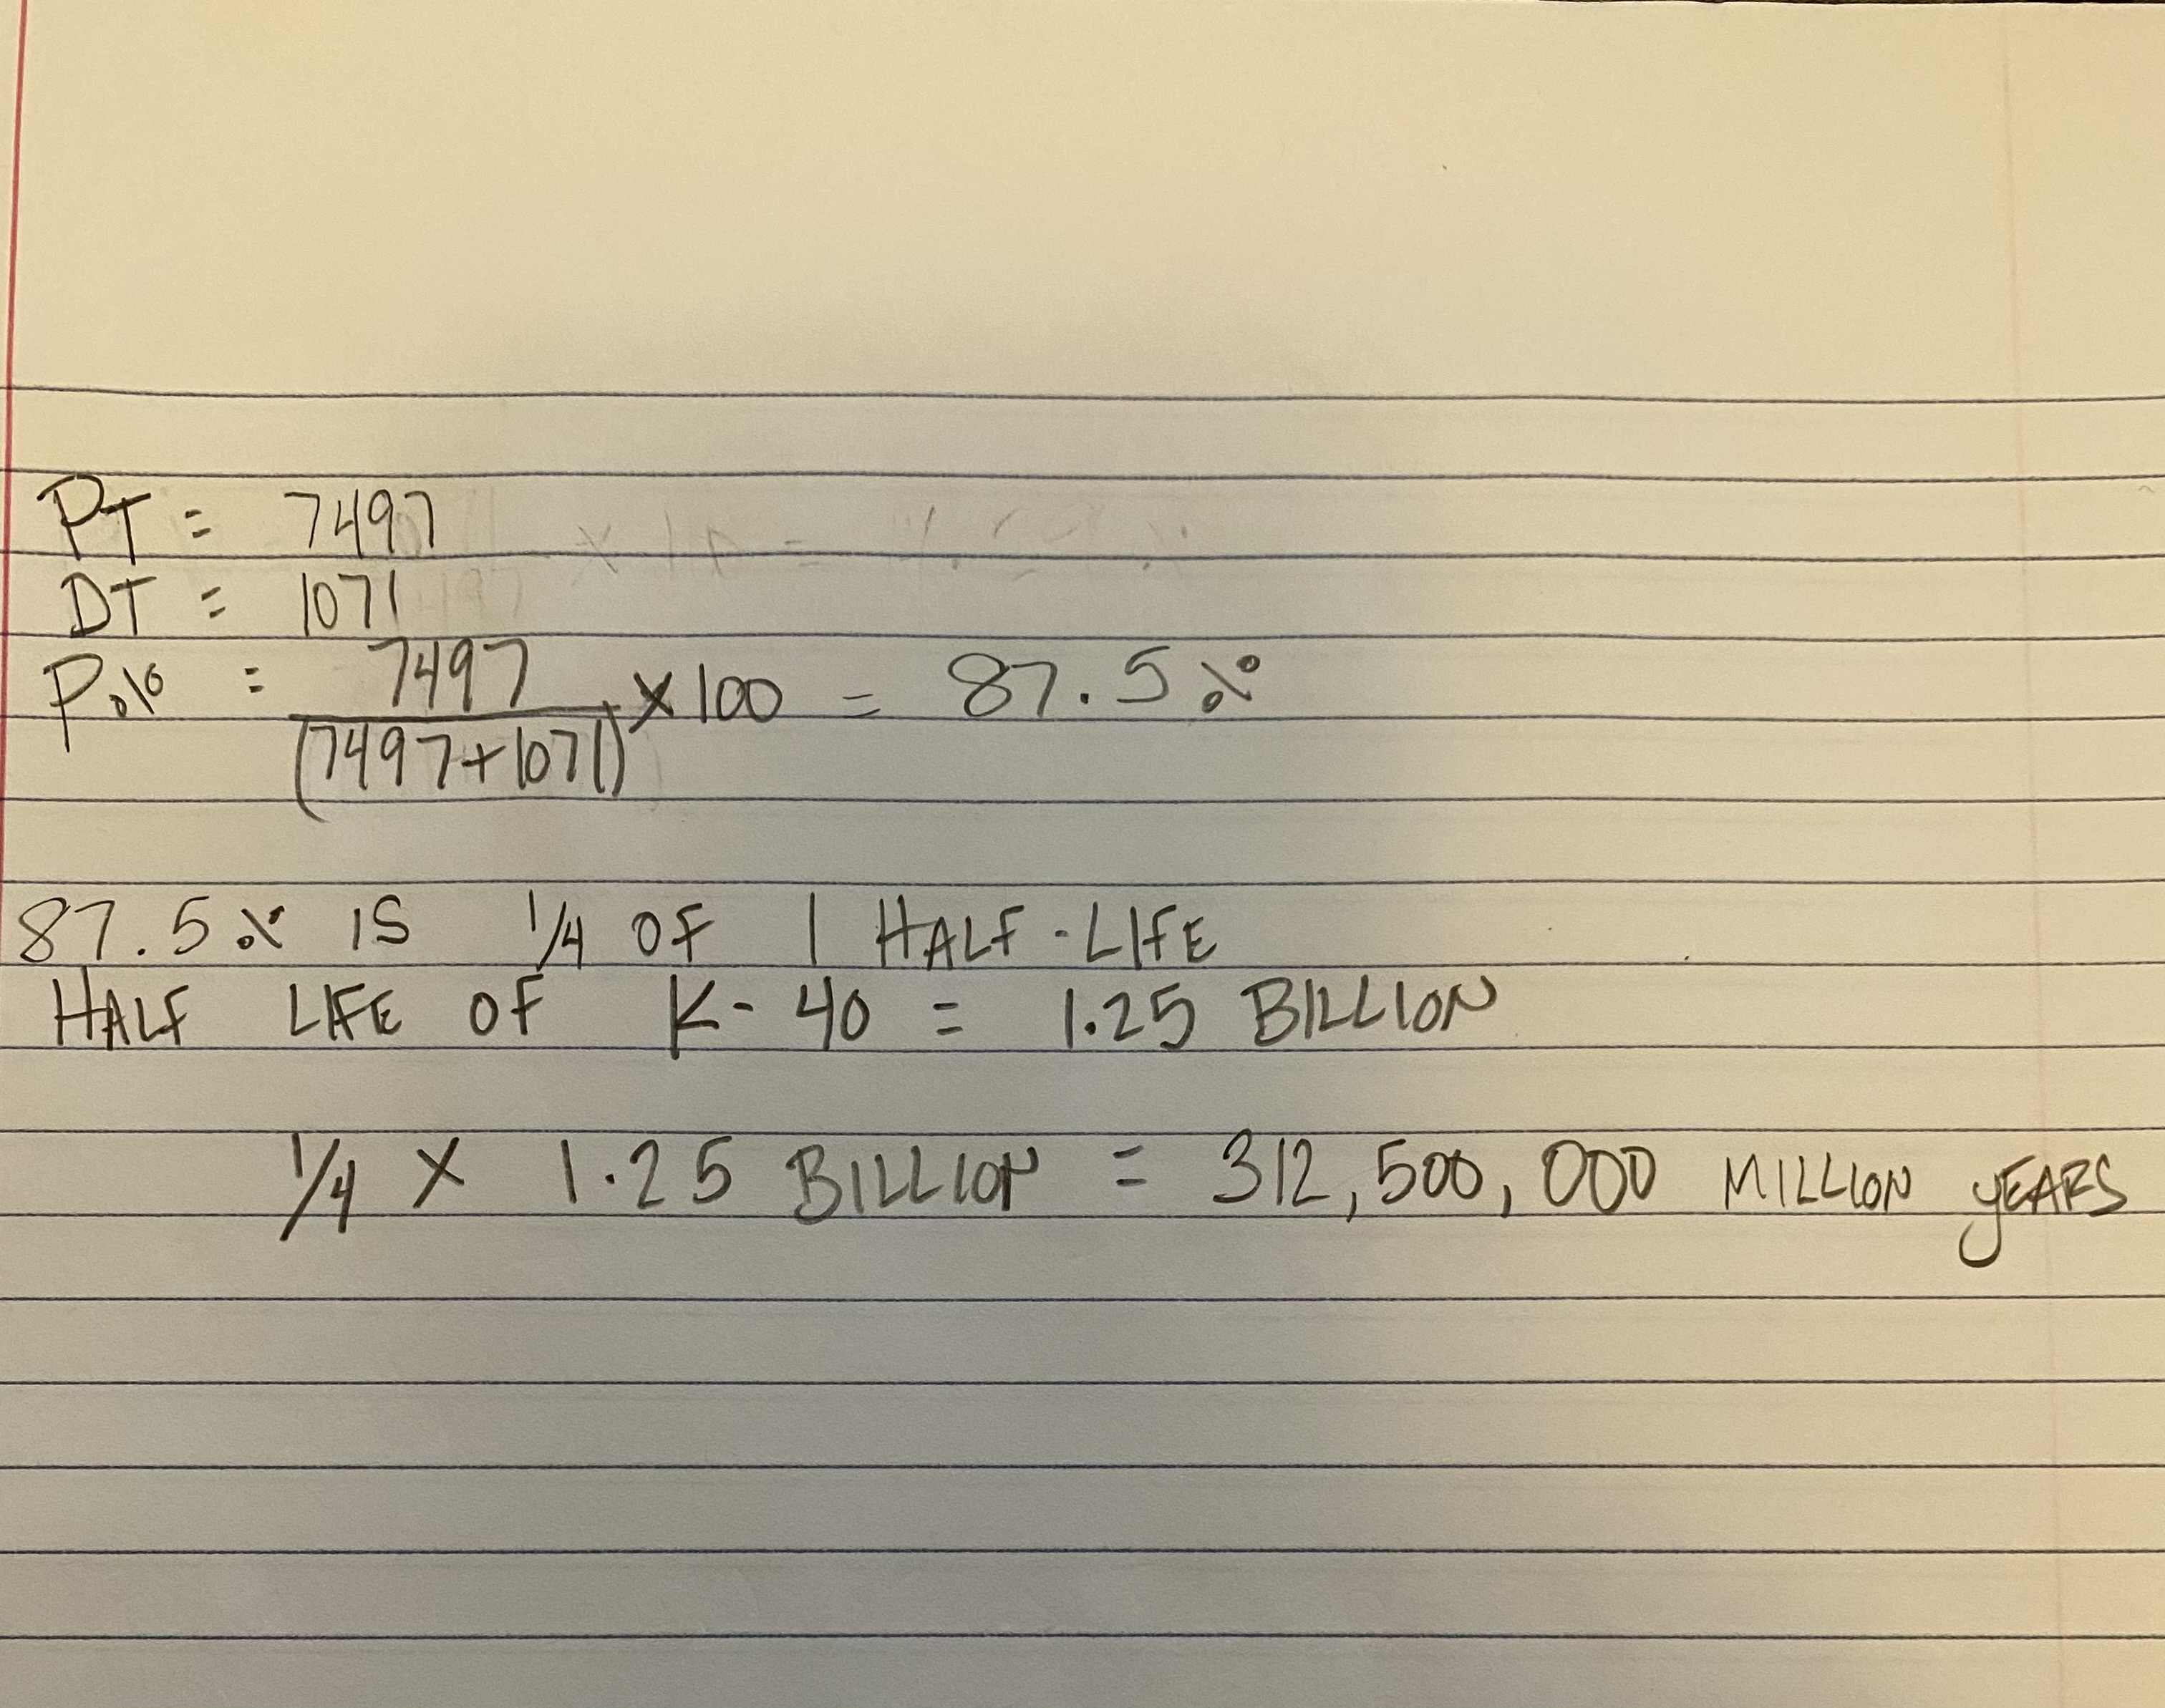 PT = 7497
DT = 1071
P% = 7497 / (7497+1071) × 100 = 87.5%
87.5% IS 1/4 OF 1 HALF-LIFE
HALF LIFE OF K-40 = 1.25 BILLION
1/4 × 1.25 BILLION = 312,500,000 MILLION YEARS